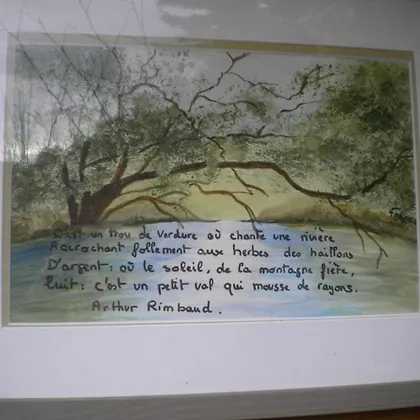 C'est un trou de verdure où chante une rivière
Accrochant follement aux herbes des haillons
D'argent : où le soleil, de la montagne fière,
luit : c'est un petit val qui mousse de rayons.
Arthur Rimbaud.